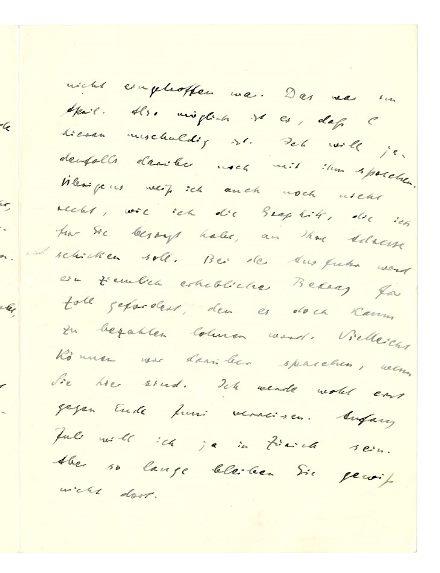 nicht eingetroffen war. Das war im
April. Also möglich ist es, daß C
hieran unschuldig ist. Ich will je-
denfalls darüber noch mit ihm sprechen.
Übrigens weiß ich auch noch nicht
recht, wie ich die Graphik, die ich
für Sie besorgt habe, an Ihre Adresse
schicken soll. Bei der Ausfuhr wird
ein ziemlich erheblicher Betrag für
Zoll gefordert, den es doch kaum
zu bezahlen lohnen wird. Vielleicht
können wir darüber sprechen, wenn
Sie hier sind. Ich werde wohl erst
gegen Ende Juni verreisen. Anfang
Juli will ich ja in Zürich sein.
Aber so lange bleiben Sie gewiß
nicht dort.